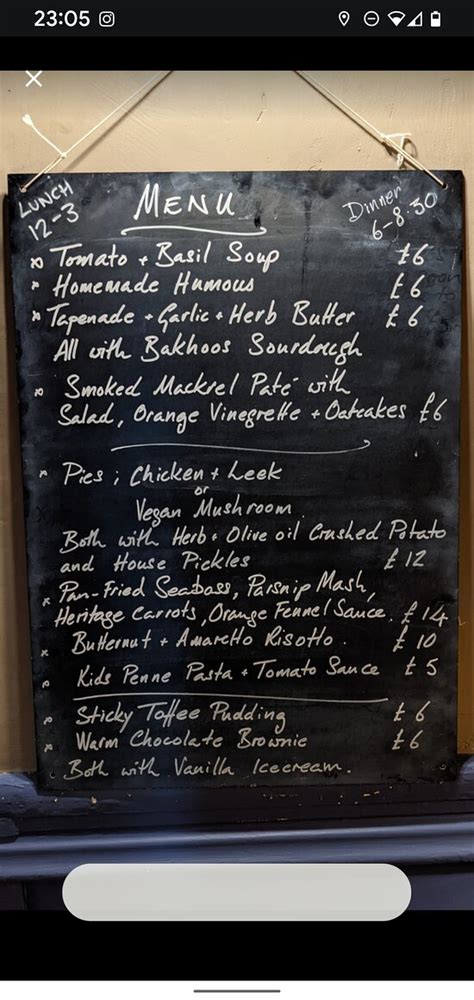 23:05
LUNCH
12-3
MENU
Dinner
6-8.30
Tomato + Basil Soup £6
Homemade Humous £6
Tapenade + Garlic + Herb Butter £6
All with Bakhoos Sourdough
Smoked Mackrel Paté with
Salad, Orange Vinegrette + Oatcakes £6
Pies ; Chicken + Leek
or
Vegan Mushroom.
Both with Herb + Olive oil Crushed Potato
and House Pickles £12
Pan-Fried Seabass, Parsnip Mash,
Heritage Carrots, Orange Fennel Sauce. £14
Butternut + Amaretto Risotto. £10
Kids Penne Pasta + Tomato Sauce £5
Sticky Toffee Pudding £6
Warm Chocolate Brownie £6
Both with Vanilla Icecream.